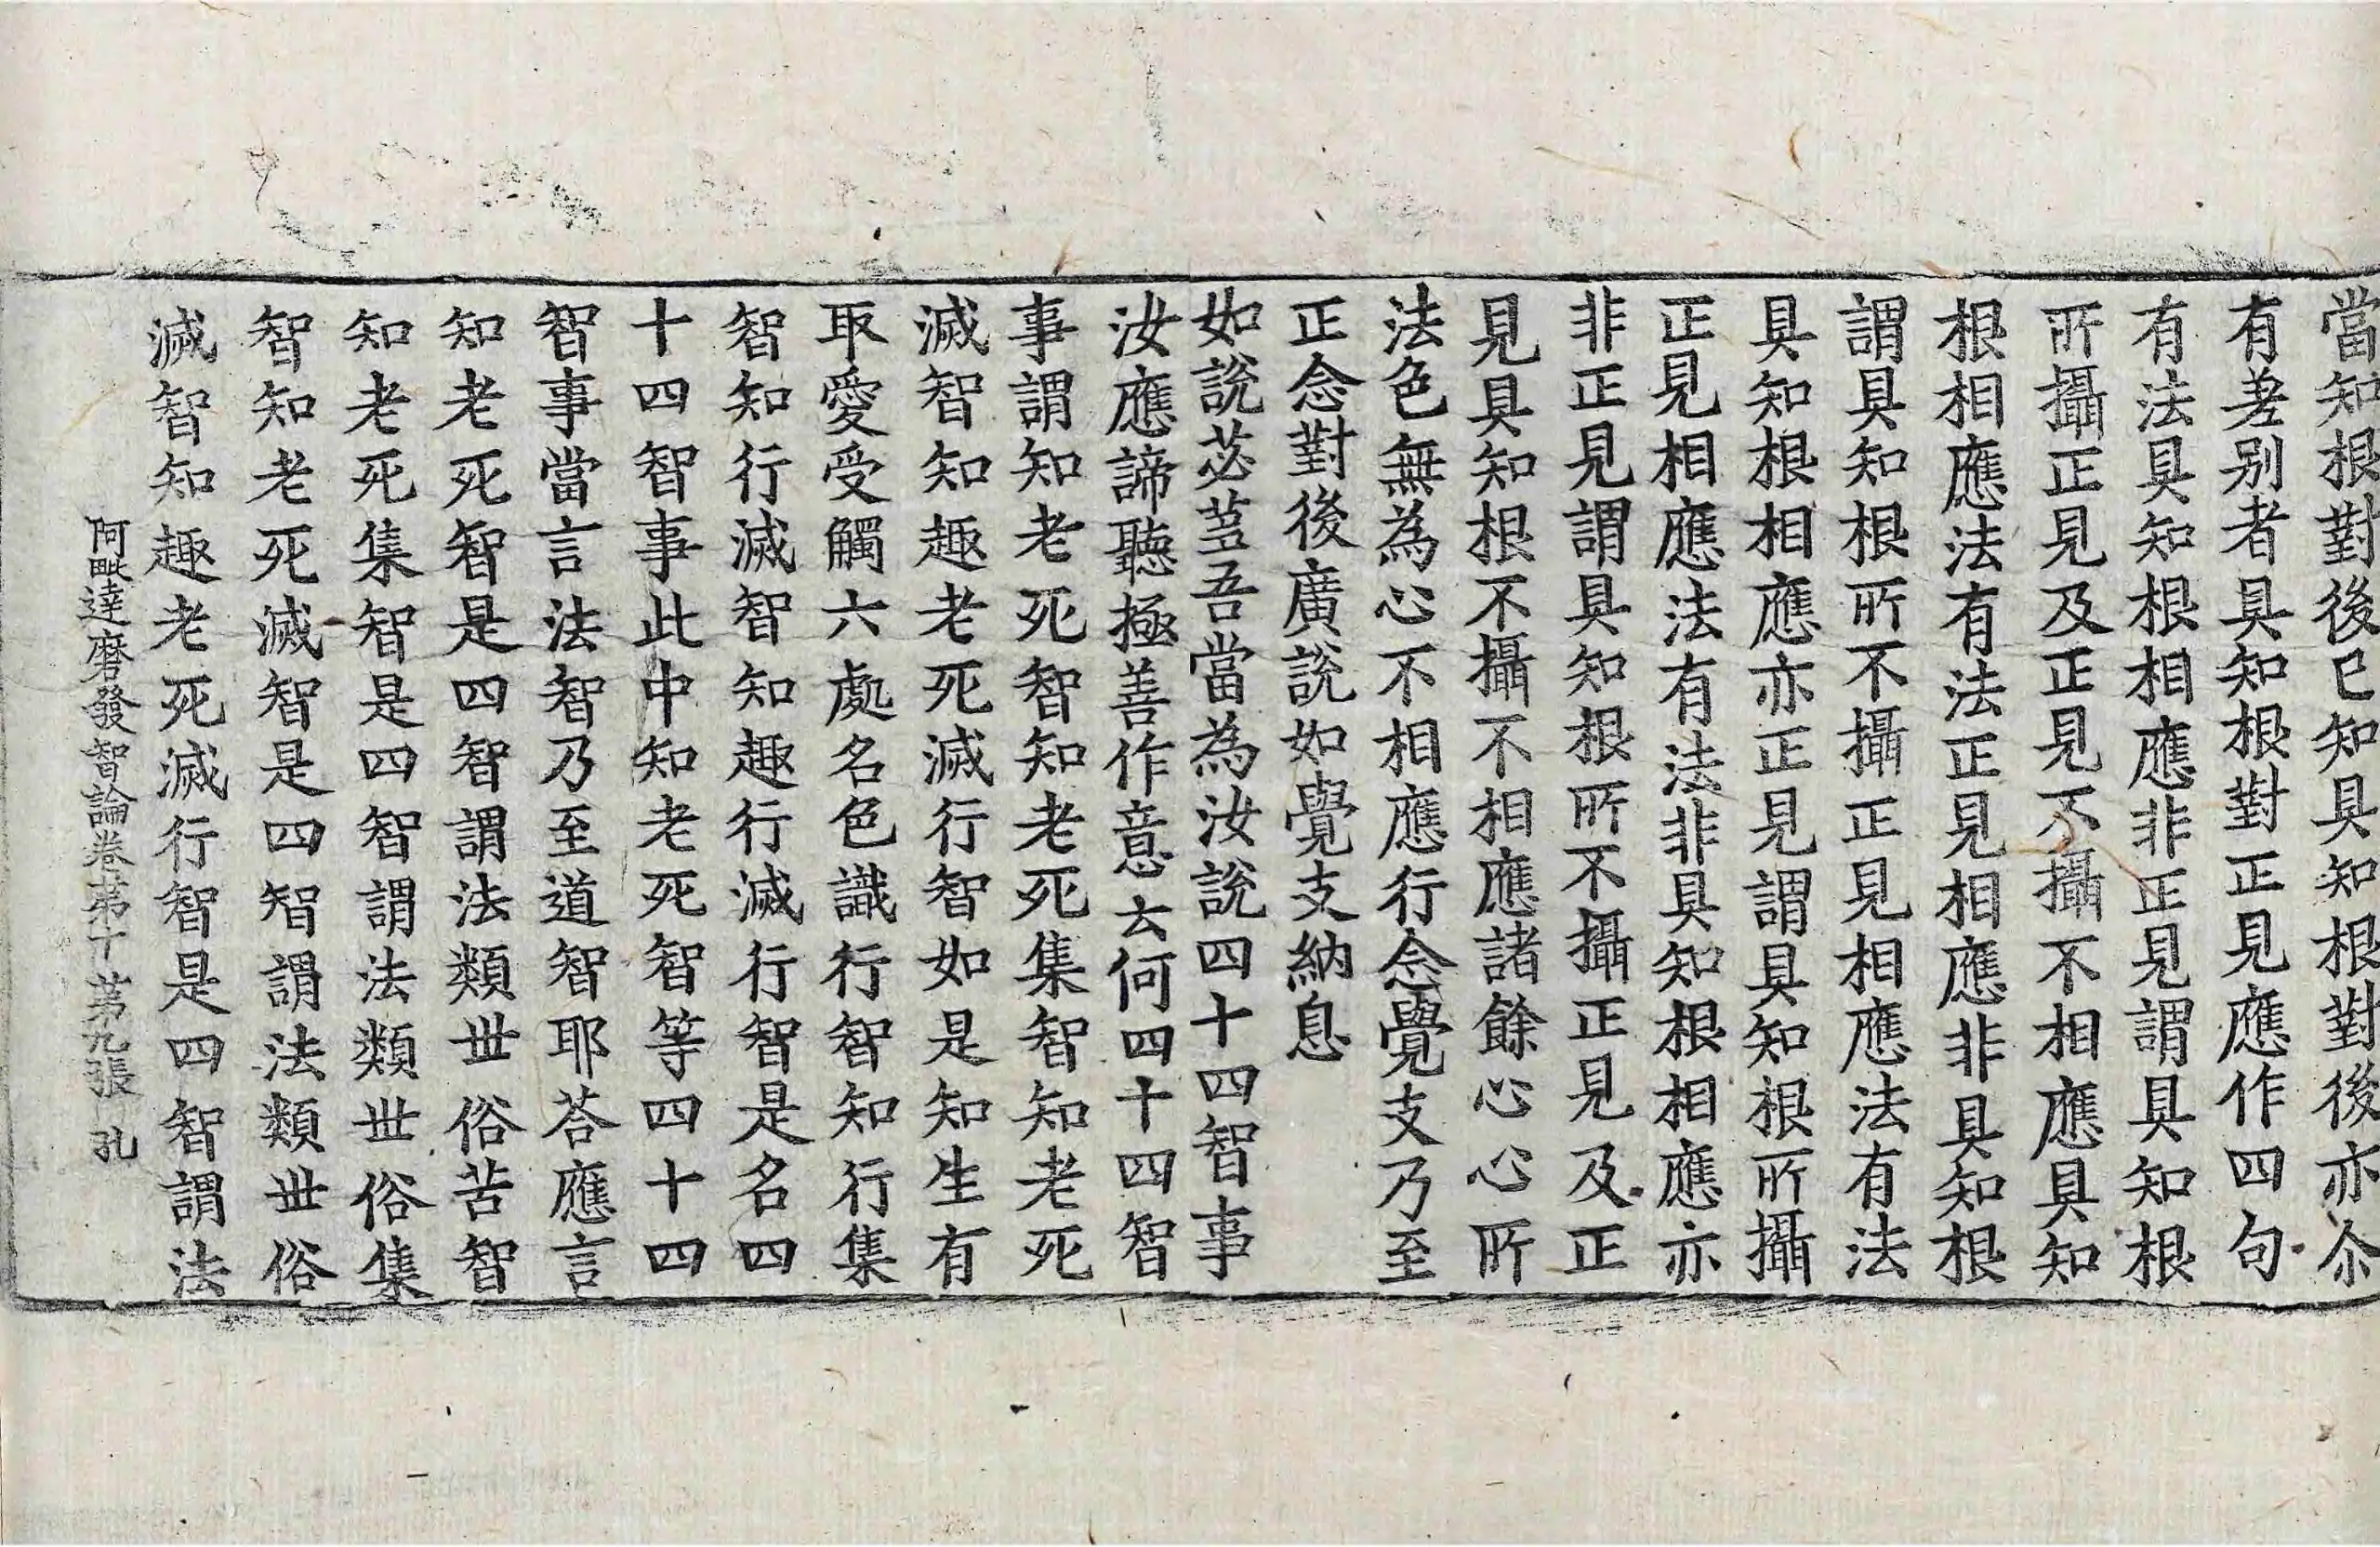 當知根對後已知具知根對後亦尒
有差别者具知根對正見應作四句
有法具知根相應非正見謂具知根
所攝正見及正見不攝不相應具知
根相應法有法正見相應非具知根
謂具知根所不攝正見相應法有法
具知根相應亦正見謂具知根所攝
正見相應法有法非具知根相應亦
非正見謂具知根所不攝正見及正
見具知根不攝不相應諸餘心心所
法色無為心不相應行念覺支乃至
正念對後廣說如覺支納息
如說苾芻吾當為汝說四十四智事
汝應諦聽極善作意云何四十四智
事謂知老死智知老死集智知老死
滅智知趣老死滅行智如是知生有
取愛受觸六處名色識行智知行集
智知行滅智知趣行滅行智是名四
十四智事此中知老死智等四十四
智事當言法智乃至道智耶荅應言
知老死智是四智謂法類世俗苦智
知老死集智是四智謂法類世俗集
智知老死滅智是四智謂法類世俗
滅智知趣老死滅行智是四智謂法
阿毗達磨發智論卷苐十 苐九張 孔